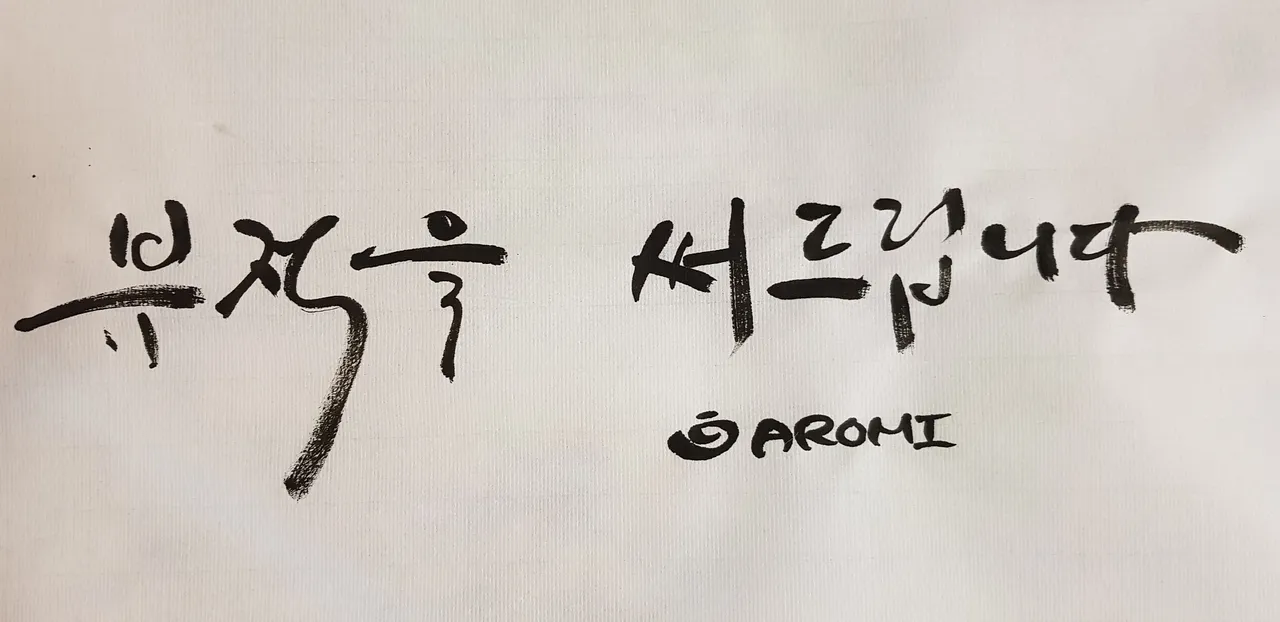 부적을 써드립니다
AROMI